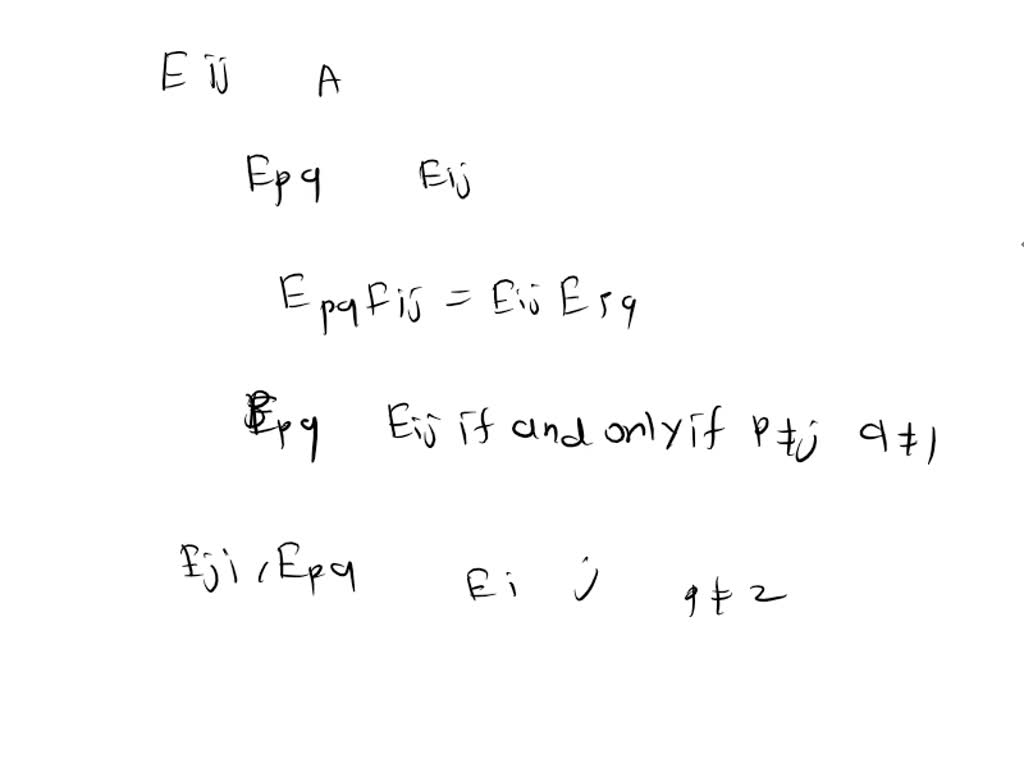 Eij A
Epq Eij
Epq Eij = Eij Erq
Epq Eij if and only if p≠j q≠1
Eji, Epq Ei j q≠2